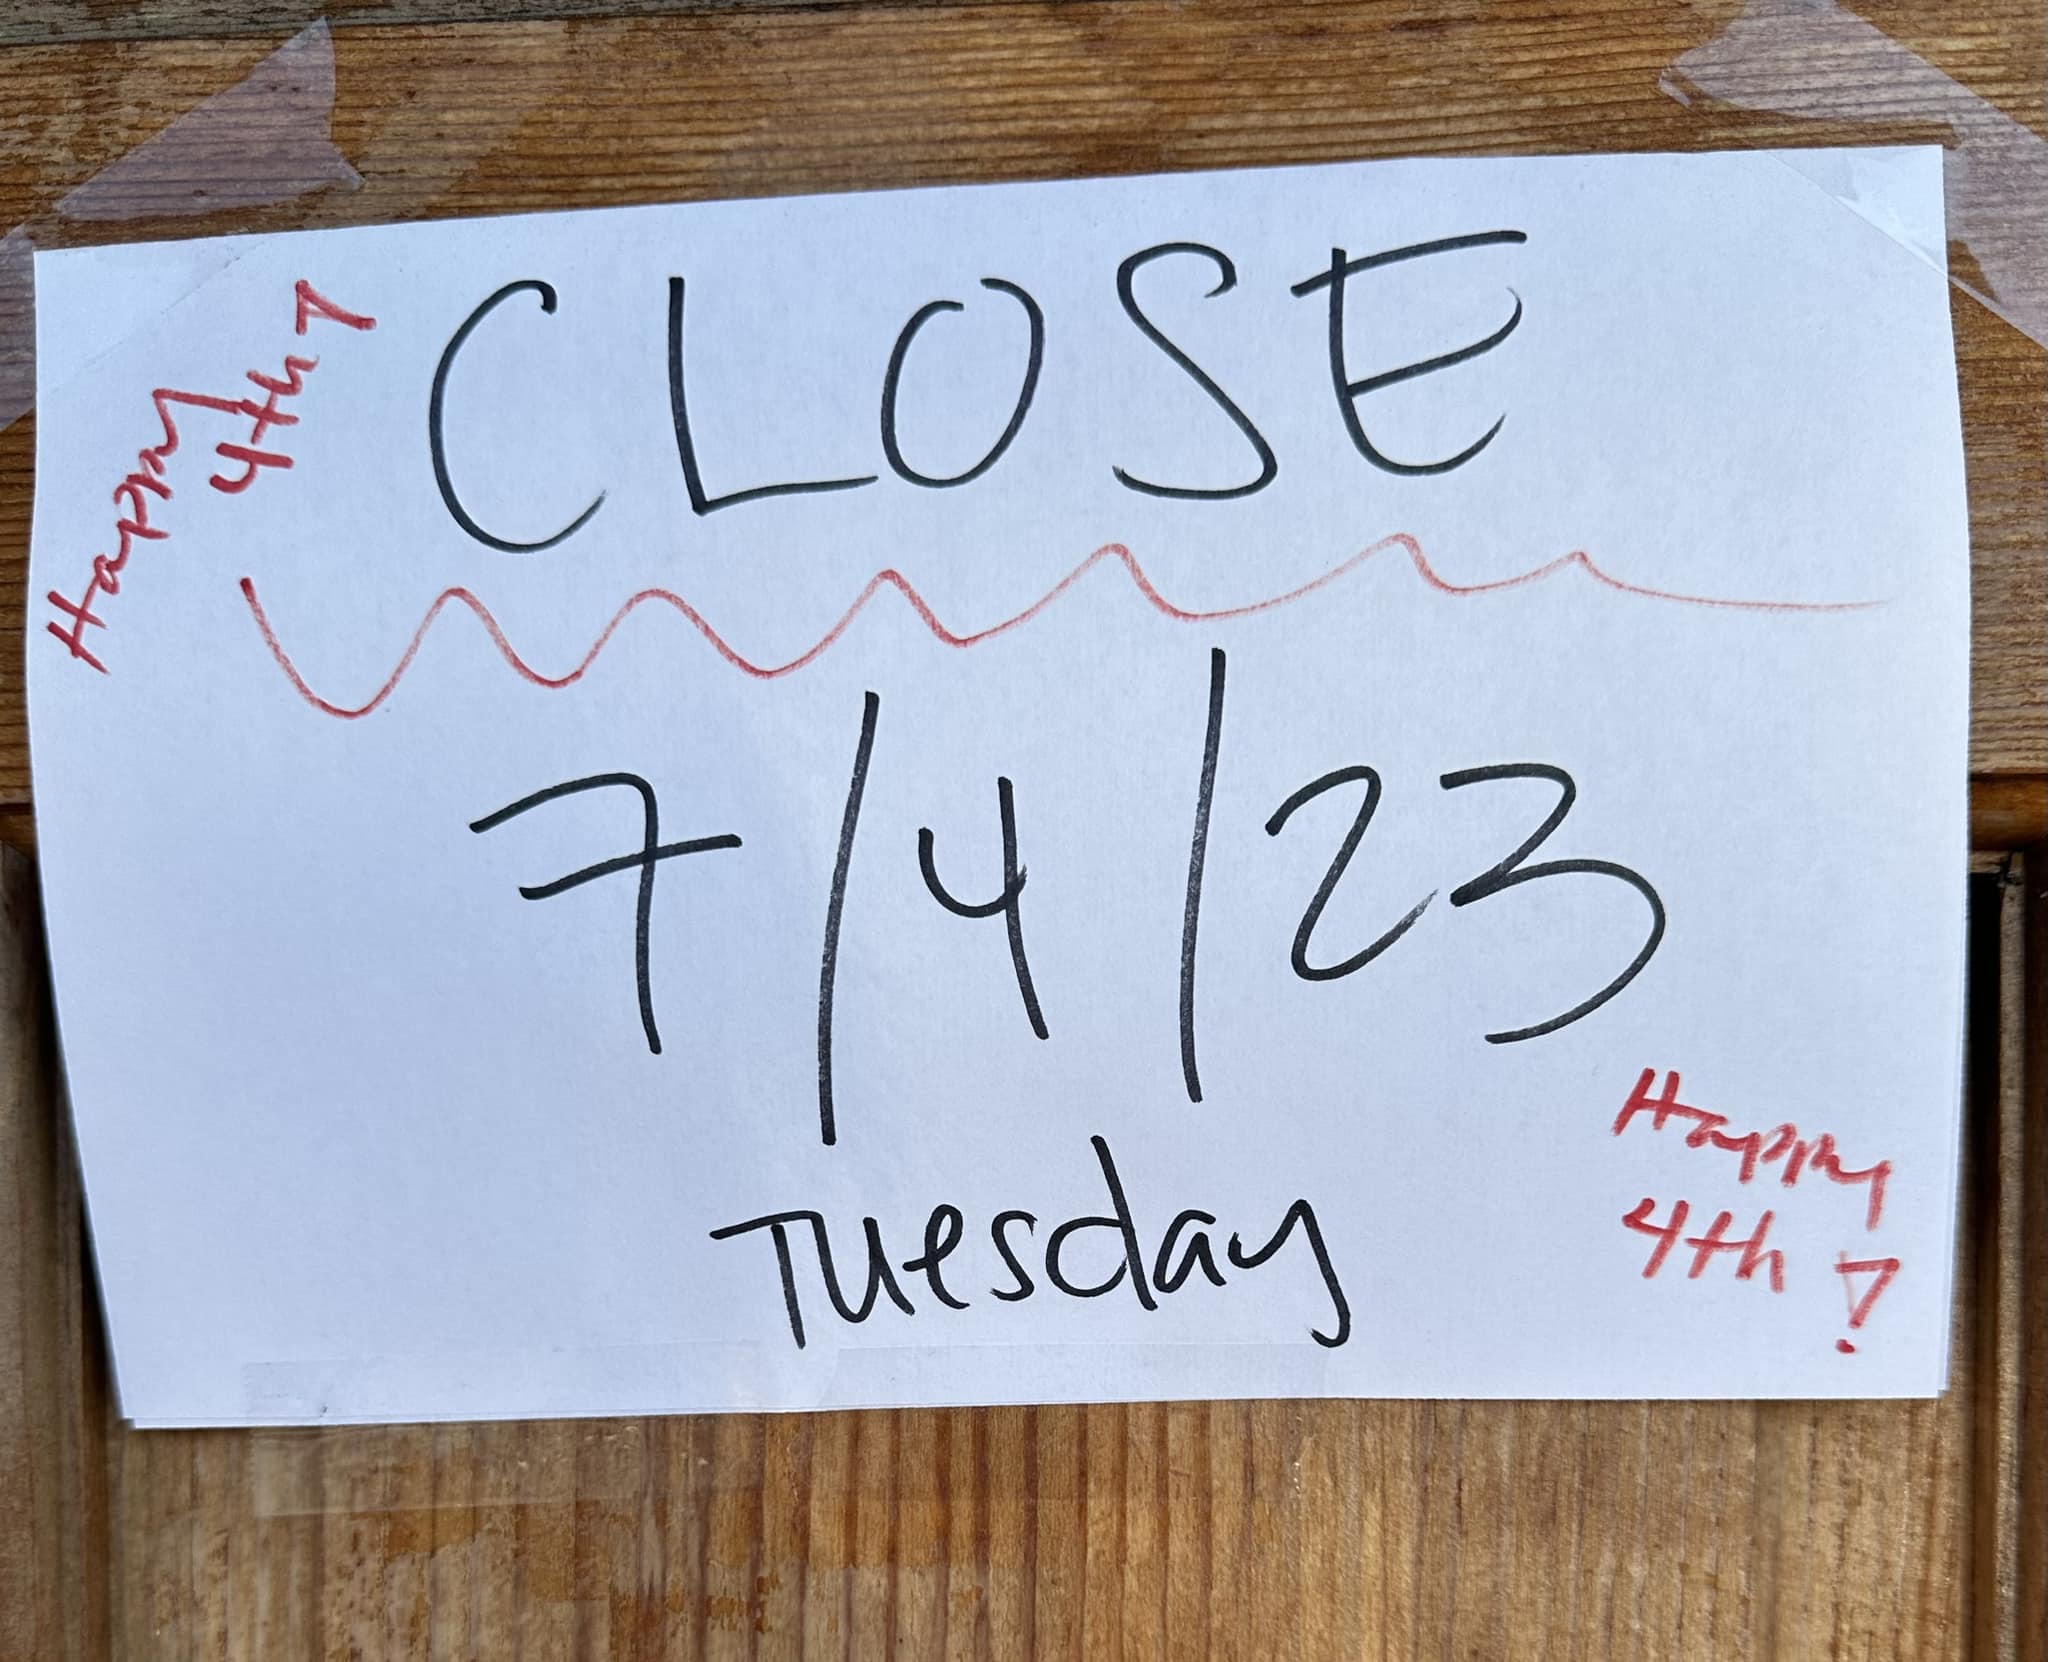 Happy
4th!
CLOSE
7/4/23
Tuesday
Happy
4th!